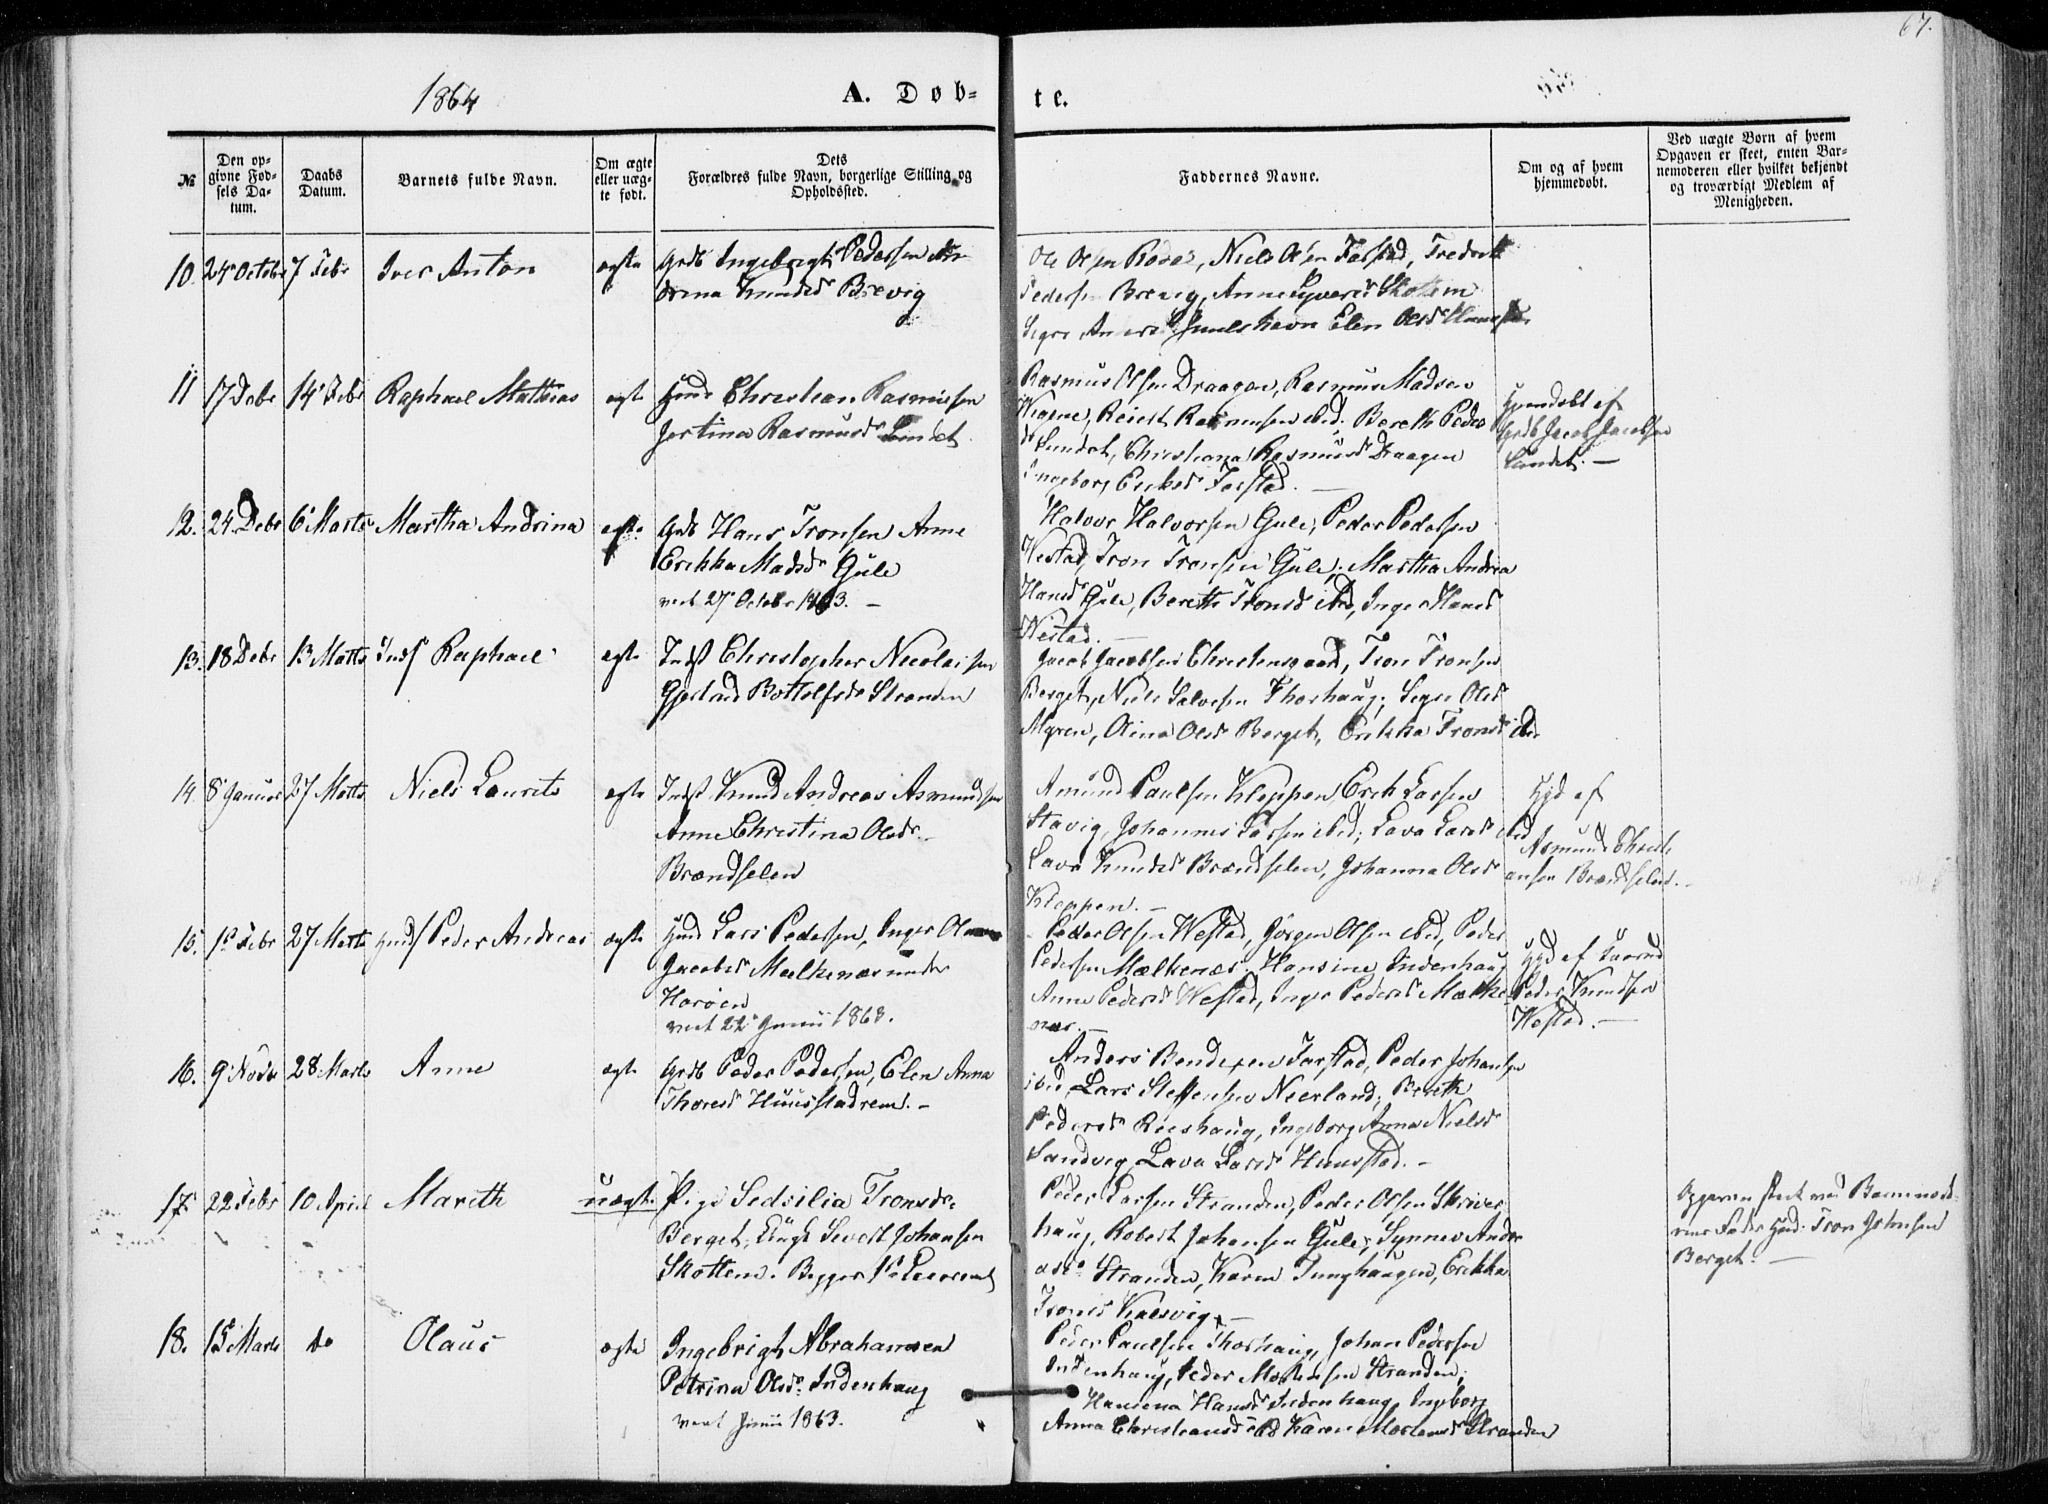 67.
1864
A. Døb-
te.
№
Den op-
givne Fød-
sels Da-
tum.
Daabs
Datum.
Barnets fulde Navn.
Om ægte
eller uæg-
te født.
Dets
Forældres fulde Navn, borgerlige Stilling og
Opholdssted.
Faddernes Navne.
Om og af hvem
hjemmedøbt.
Ved uægte Børn af hvem
Opgaven er skeet, enten Bar-
nemoderen eller hvilket bekjendt
og troværdigt Medlem af
Menigheden.
10. 24 Octobr 7 Febr Iver Anton ægte Grdb Ingebrigt Pedersen
Knudsd Brevig
Ole Olsen Niels Olsen Farstad, Fredrik
Pedersen Brevig, Anne Skottem
Elen Olsd
11 17 Debr 14 Febr Raphael Mathias ægte Huus Christian Rasmusen
Jertina Rasmusd Sundet
Rasmus Olsen Draagen, Rasmus Madsen
Reiert Rasmusen ibid; Bereth Peders
Sundet, Christiana Rasmusd Draagen
Ingeborg Eriksd Farstad. —
Hjemdøbt af
Grdb Jacob Jacobsen
Sundet. —
12. 24 Debr 6 Marts Martha Andrina ægte Grdb Hans Tronsen Anne
Erikka Madsdr Gule
viet 27 Octobr 1863. —
Halvor Halvorsen Gule, Peder Pedersen
Westad, Tron Tronsen Gule; Martha Andrea
Hansd Gule, Bereth Tronsd ibid, Inger Hansd
Westad. —
13. 18 Debr 13 Marts Raphael ægte Indst Christopher Nicolaisen
Gjertrud Bottolfsdr Stranden
Jacob Jacobsen Christensgaard, Tron Tronsen
Berget, Niels Salvesen Thorhaug; Olsd
Myren, Olina Olsd Berget, Erikka Tronsd ibid
14. 8 Januar 27 Marts Niels Laurits ægte Indst Knud Andreas Asmundsen
Anne Christina Olsdr
Brændselen
Amund Paulsen Kleppen, Erik Larsen
Stavig, Johannes Larsen ibid; Lava Larsd ibid
Lava Knudsd Brændselen, Johanna Olsd
Kleppen. —
Hjd af
Asmund Christi
ansen Brændselen. —
15. 1 Febr 27 Marts Peder Andreas ægte Huus Lars Pedersen, Inger
Jacobsd Malkenæs under
Harøen
viet 22 Junii 1863.
Peder Olsen Westad, Jørgen Olsen ibid, Peder
Pedersen Malkenæs; Hansine Indenhaug
Anne Pedersd Westad, Inger Pedersd Malke
næs. —
Hjd af
Peder Knudsen
Westad. —
16. 9 Novbr 28 Marts Anne ægte Grdb Peder Pedersen, Elen Anna
Thoresd Huusstadrem. —
Anders Bendixen Farstad, Peder Johansen
ibid, Lars Steffensen Neerland; Bereth
Pedersd Rishaug, Ingeborg Anna Nielsd
Sandvig, Lava Larsd Huusstad. —
17. 22 Febr 10 April Mareth uægte Pige Sedsilia Tronsdr
Berget, Ungk Sivert Johansen
Skottem. Begges 1e Leiermaal
Peder Larsen Stranden, Peder Olsen Skriver
haug, Robert Johansen Gule; Synnev Andre
asdr Stranden, Karen Tunghaugen, Erikka
Tronsd Kalsvig. —
Opgaven skeet ved Barnemode-
rens Fader Huus: Tron Johnsen
Berget. —
18. 15 Marts do Olaus ægte Ingebrigt Abrahamsen
Petrina Olsdr Indenhaug
viet Junii 1863.
Peder Paulsen Thorhaug, Johan Pedersen
Indenhaug, Peder Mortensen Stranden;
Hansena Hansd Indenhaug, Ingeborg
Anna Christiansd ibid Karen Mortensd Stranden